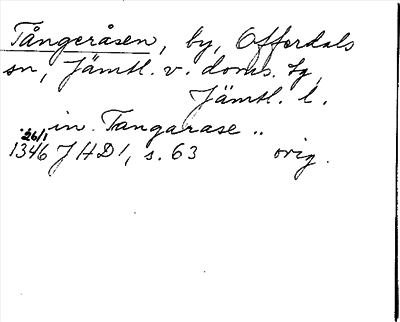 Tångeråsen, by, Offerdals
sn, Jämtl. v. doms. tg,
Jämtl. l.
in Tangarase ..
26/1
1346 JHD 1, s. 63 orig.